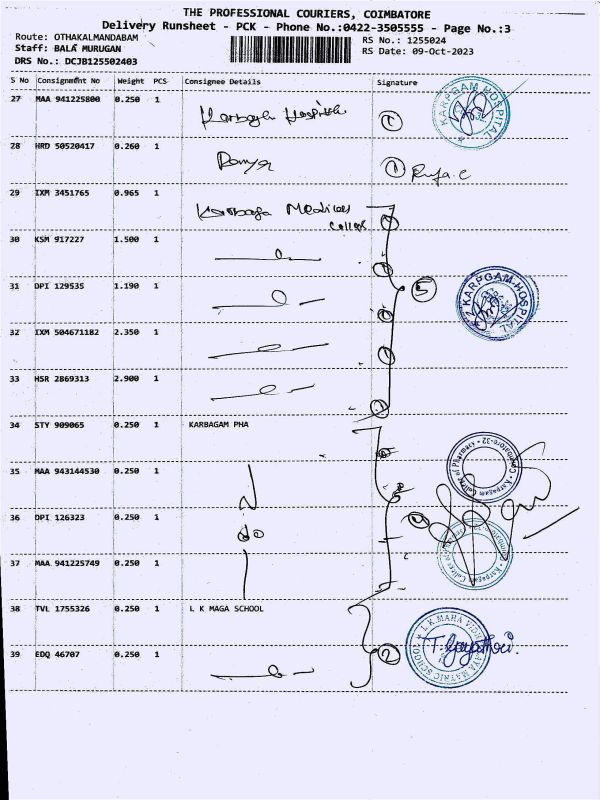 THE PROFESSIONAL COURIERS, COIMBATORE
Delivery Runsheet - PCK - Phone No.:0422-3505555 - Page No.:3
Route: OTHAKALMANDABAM
RS No.: 1255024
Staff: BALA MURUGAN
RS Date: 09-Oct-2023
DRS No.: DCJB125502403
S No Consignment No Weight PCS Consignee Details Signature
27 MAA 941225800 0.250 1
KARPGAM HOSPITAL
28 HRD 50520417 0.260 1
29 IXM 3451765 0.965 1 Medical
College
30 KSM 917227 1.500 1
31 DPI 129535 1.190 1 5 KARPGAM HOSPITAL
32 IXM 504671182 2.350 1
33 HSR 2869313 2.900 1
34 STY 909065 0.250 1 KARBAGAM PHA
Karpagam College of Pharmacy • Coimbatore-32
35 MAA 943144530 0.250 1
36 DPI 126323 0.250 1 do
37 MAA 941225749 0.250 1
38 TVL 1755326 0.250 1 L K MAGA SCHOOL
L.K.MAHA VIDYALAYA MATRIC SCHOOL
39 EDQ 46707 0.250 1 2